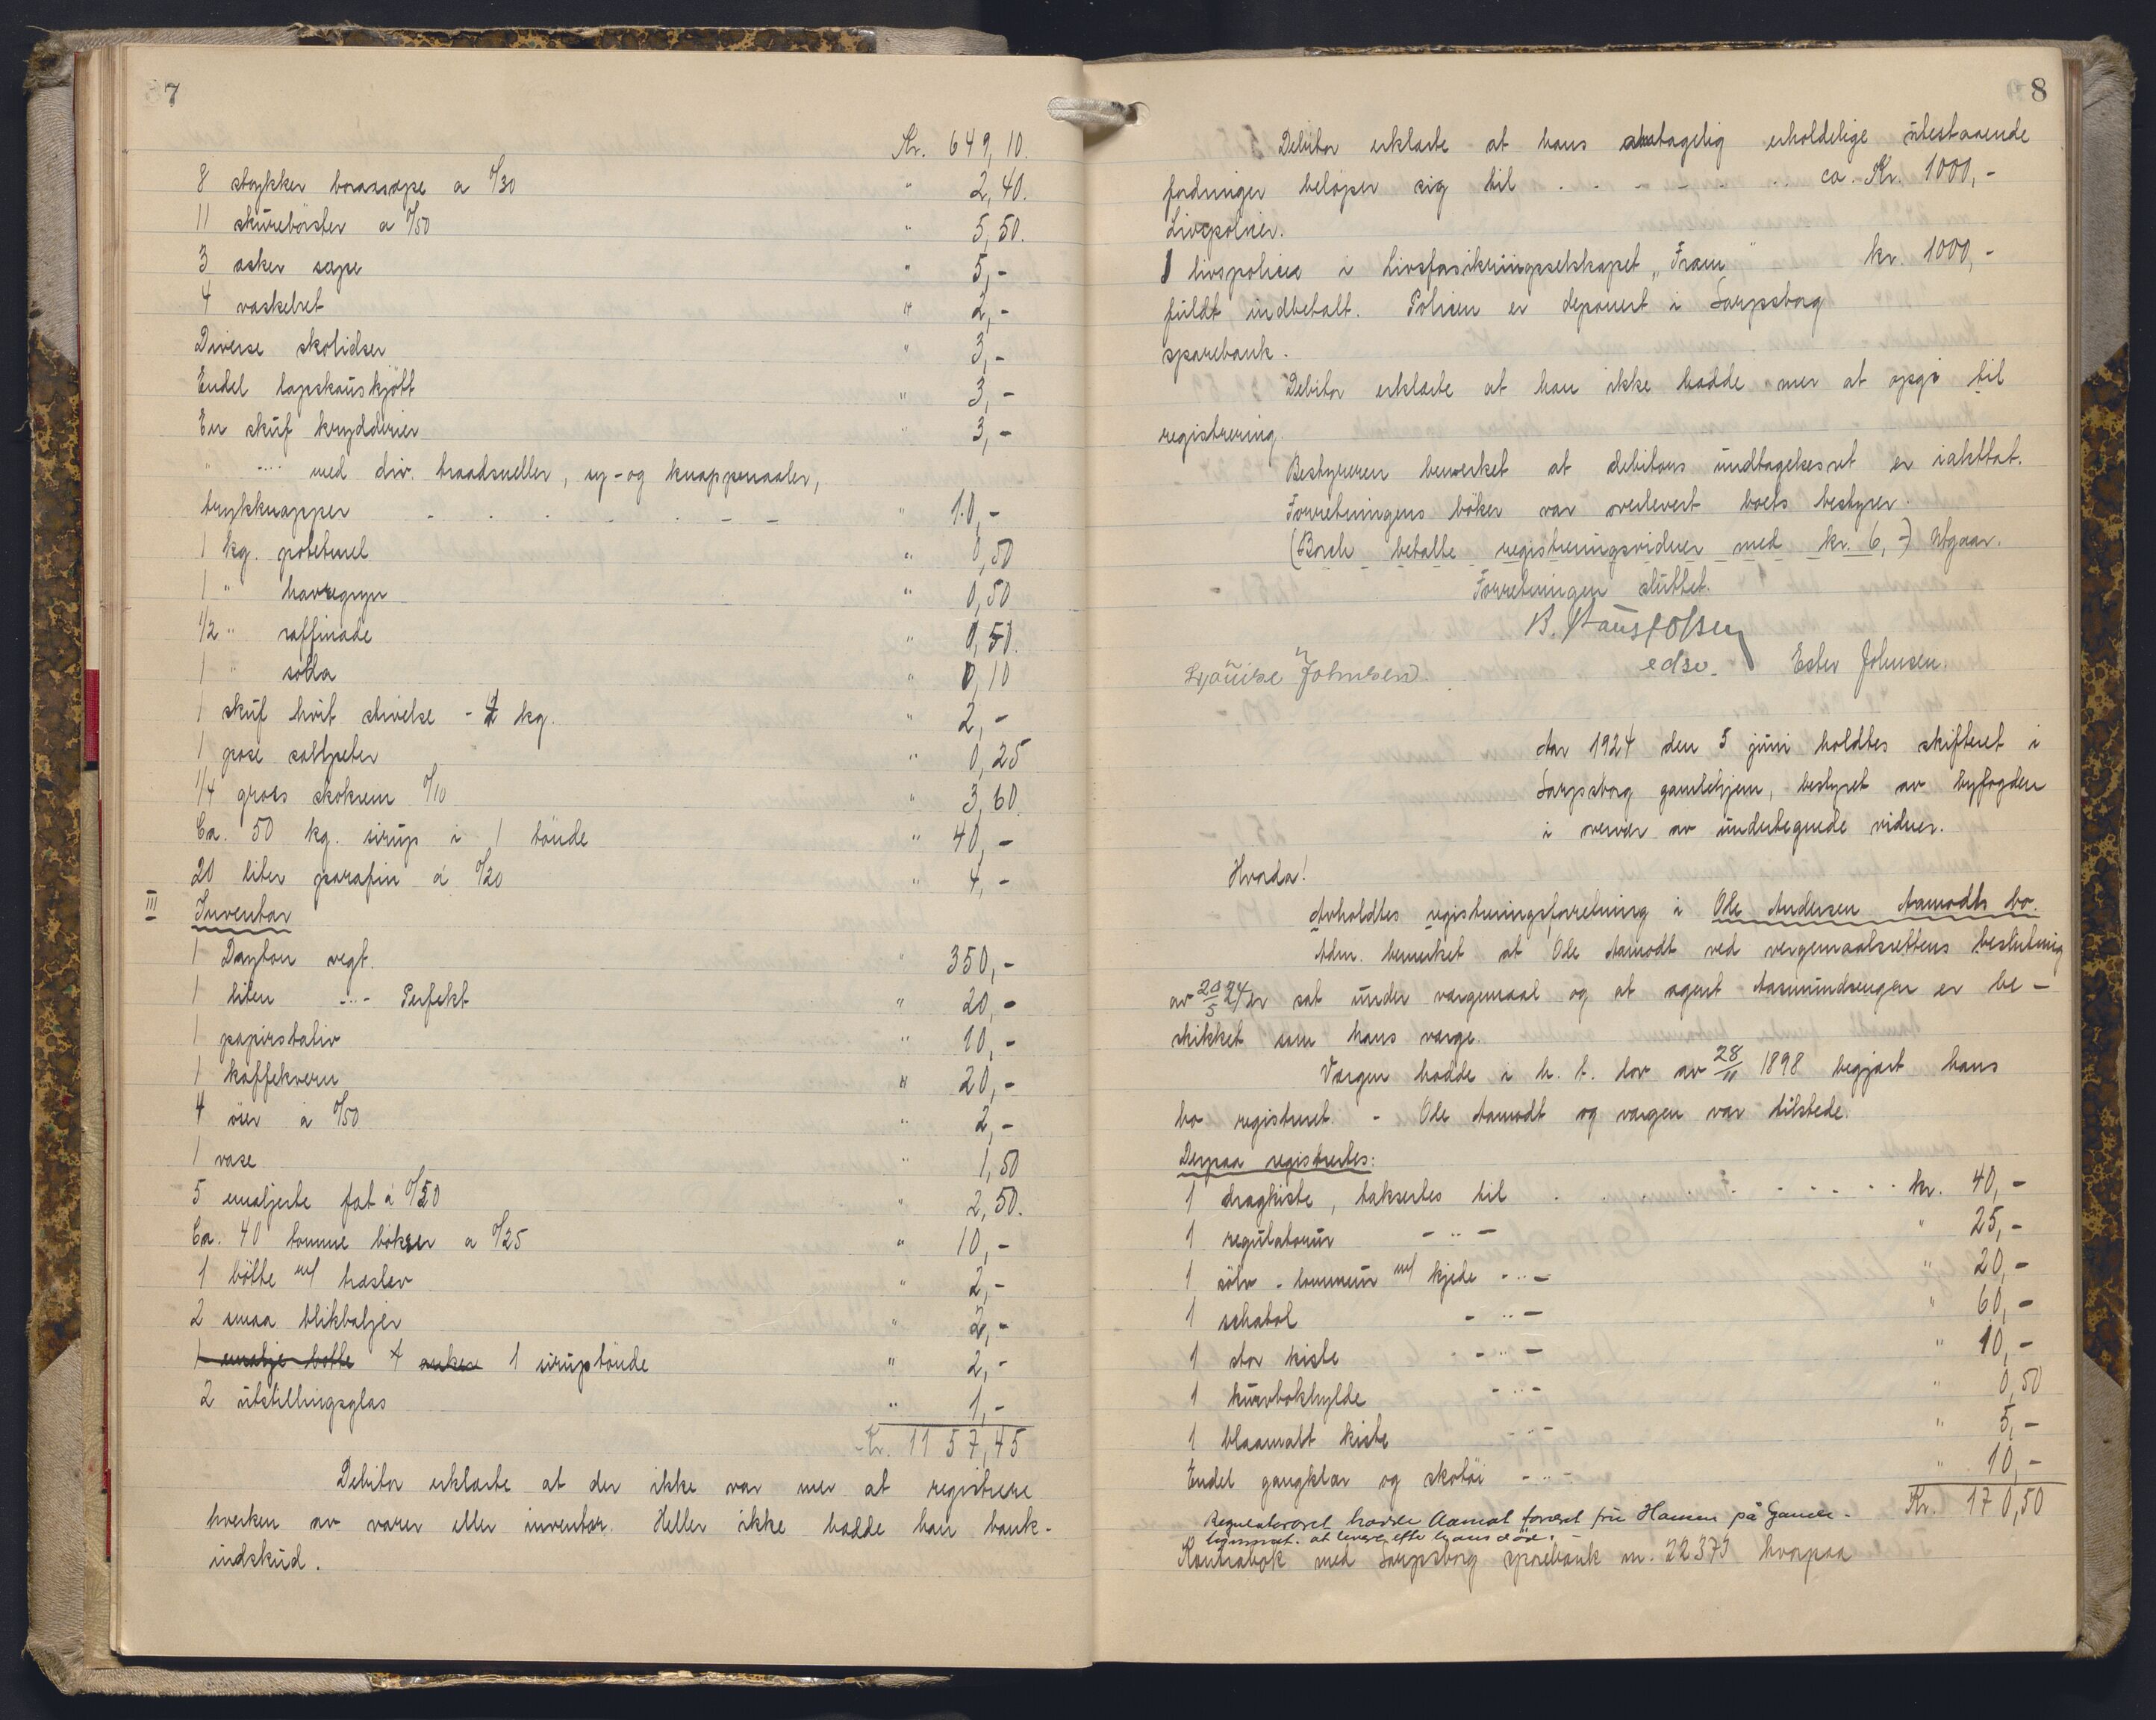 7
Kr. 649,10.
8 stykker boraxsæpe a 0/30 " 2,40.
11 skurebörster a 0/50 " 5,50.
3 æsker sæpe " 5,-
4 vaskebret " 2,-
Diverse skolidser " 3,-
Endel lapskauskjött " 3,-
En skuf krydderier " 3,-
" -..- med div. traadsneller, sy- og knappenaaler,
trykknapper - . . . . . - - " 10,-
1 kg. potetmel " 0,50
1 " havregryn " 0,50
1/2 " raffinade " 0,50.
1 " soda " 0,10
1 skuf hvit stivelse - 2 kg. " 2,-
1 pose saltpeter " 0,25
1/4 gross skokrem 0/10 " 3,60.
Ca. 50 kg. sirup i 1 tönde " 40,-
20 liter parafin á 0/20 " 4,-
III Inventar
1 Dayton vegt. " 350,-
1 liten -..- Perfekt " 20,-
1 papirstativ " 10,-
1 kaffekvern " 20,-
4 öser á 0/50 " 2,-
1 vase " 1,50
5 emaljerte fat á 0/50 " 2,50.
Ca. 40 tomme bokser a 0/25 " 10,-
1 bötte m/ træslev " 2,-
2 smaa blikbaljer " 2,-
1 emalje bötte + 1 siruptönde " 2,-
2 utstillingsglas " 1,-
Kr. 1157,45
Debitor erklærte at der ikke var mer at registrere
hverken av varer eller inventar. Heller ikke hadde han bank-
indskud.
8
Debitor erklærte at hans antagelig erholdelige utestaaende
fordringer belöper sig til . . - - - . . . ca. Kr. 1000,-
Livspolicer.
1 livspolice i Livsforsikringsselskapet „Fram" kr. 1000,-
fuldt indbetalt. Policen er deponert i Sarpsborg
sparebank.
Debitor erklærte at han ikke hadde mer at opgi til
registrering.
Bestyreren bemerket at debitors undtagelsesret er iakttat.
Forretningens böker var overlevert boets bestyrer.
(Borch betalte registreringsvidner med kr. 6,-) Utgaar.
Forretningen sluttet.
edsv. Ester Johnsen.
Louise Johnsen.
Aar 1924 den 5 juni holdtes skifteret i
Sarpsborg gamlehjem, bestyret av byfogden
i overvær av undertegnede vidner.
Hvorda!
Avholdtes registreringsforretning i Ole Andersen Aamodts bo.
Adm. bemerket at Ole Aamodt ved vergemaalsrettens beslutning
av 20/5 24 er sat under vergemaal og at agent Aasmundsengen er be-
skikket som hans værge.
Værgen hadde i h. t. lov av 28/11 1898 begjært hans
bo registrert. - Ole Aamodt og værgen var tilstede.
Derpaa registrertes:
1 dragkiste, taksertes til . . . . . . . - . . . . kr. 40,-
1 regulatorur - .. - " 25,-
1 sölv-lommeur m/ kjede - .. - " 20,-
1 schatol - .. - " 60,-
1 stor kiste - .. - " 10,-
1 kurvbokhylde - .. - " 0,50
1 blaamalt kiste - .. - " 5,-
Endel gangklær og skotöi - .. - " 10,-
Kr. 170,50
Regulatoruret havde Aamot foræret fru Hansen på Gamle-
hjemmet. at levere efter hans död. -
Kontrabok med Sarpsborg sparebank nr. 22373 hvorpaa